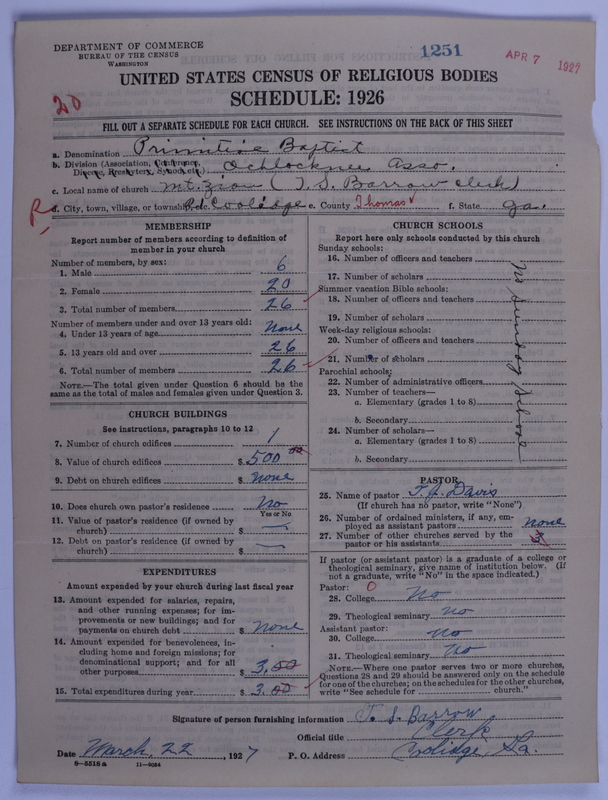 DEPARTMENT OF COMMERCE
BUREAU OF THE CENSUS
WASHINGTON
1251
APR 7 1927
UNITED STATES CENSUS OF RELIGIOUS BODIES
SCHEDULE: 1926
20
FILL OUT A SEPARATE SCHEDULE FOR EACH CHURCH. SEE INSTRUCTIONS ON THE BACK OF THIS SHEET
a. Denomination Primitive Baptist
b. Division (Association, Conference, Diocese, Presbytery, Synod, etc.) Ochlocknee Asso.
c. Local name of church Mt. Zion (T. S. Barrow clerk)
R d. City, town, village, or township, etc. Coolidge e. County Thomas f. State Ga.
MEMBERSHIP
Report number of members according to definition of
member in your church
Number of members, by sex:
1. Male 6
2. Female 20
3. Total number of members 26
Number of members under and over 13 years old:
4. Under 13 years of age None
5. 13 years old and over 26
6. Total number of members 26
NOTE.—The total given under Question 6 should be the
same as the total of males and females given under Question 3.
CHURCH BUILDINGS
See instructions, paragraphs 10 to 12
7. Number of church edifices 1
8. Value of church edifices $ 500 00
9. Debt on church edifices $ None
10. Does church own pastor's residence No
Yes or No
11. Value of pastor's residence (if owned by
church) $ —
12. Debt on pastor's residence (if owned by
church) $ —
EXPENDITURES
Amount expended by your church during last fiscal year
13. Amount expended for salaries, repairs,
and other running expenses; for im-
provements or new buildings; and for
payments on church debt $ None
14. Amount expended for benevolences, in-
cluding home and foreign missions; for
denominational support; and for all
other purposes $ 3.00
15. Total expenditures during year $ 3.00
CHURCH SCHOOLS
Report here only schools conducted by this church
Sunday schools:
16. Number of officers and teachers
17. Number of scholars
Summer vacation Bible schools:
18. Number of officers and teachers
19. Number of scholars
Week-day religious schools:
20. Number of officers and teachers
21. Number of scholars
Parochial schools:
22. Number of administrative officers
23. Number of teachers—
a. Elementary (grades 1 to 8)
b. Secondary
24. Number of scholars—
a. Elementary (grades 1 to 8)
b. Secondary
No Sunday School
PASTOR
25. Name of pastor T. J. Davis
(If church has no pastor, write "None")
26. Number of ordained ministers, if any, em-
ployed as assistant pastors None
27. Number of other churches served by the
pastor or his assistants 3
If pastor (or assistant pastor) is a graduate of a college or
theological seminary, give name of institution below. (If
not a graduate, write "No" in the space indicated.)
Pastor: 0
28. College No
29. Theological seminary No
Assistant pastor:
30. College No
31. Theological seminary No
NOTE.—Where one pastor serves two or more churches,
Questions 28 and 29 should be answered only on the schedule
for one of the churches; on the schedules for the other churches,
write "See schedule for church."
Signature of person furnishing information T. S. Barrow
Official title Clerk
Date March, 22, 1927 P. O. Address Coolidge, Ga.
8—5518a 11—9034